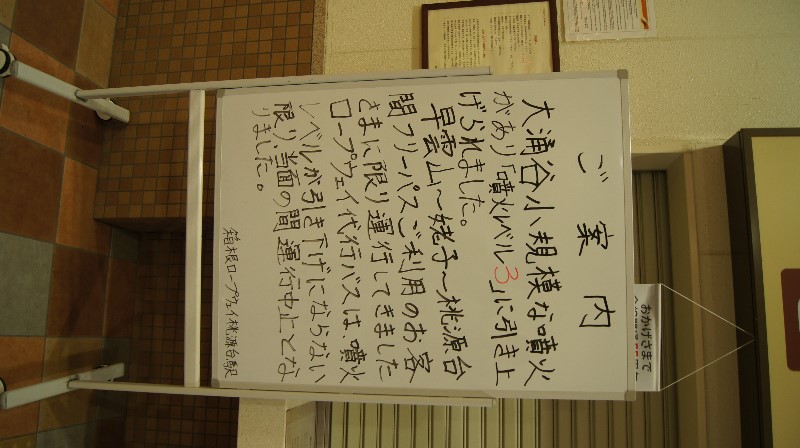 ご案内
大涌谷小規模な噴火
があり「噴火レベル3」に引き上
げられました。
早雲山～姥子～桃源台
間フリーパスご利用のお客
さまに限り運行してきました
ロープウェイ代行バスは、噴火
レベルが引き下げにならない
限り、当面の間運行中止とな
りました。
箱根ロープウェイ桃源台駅
おかげさまで